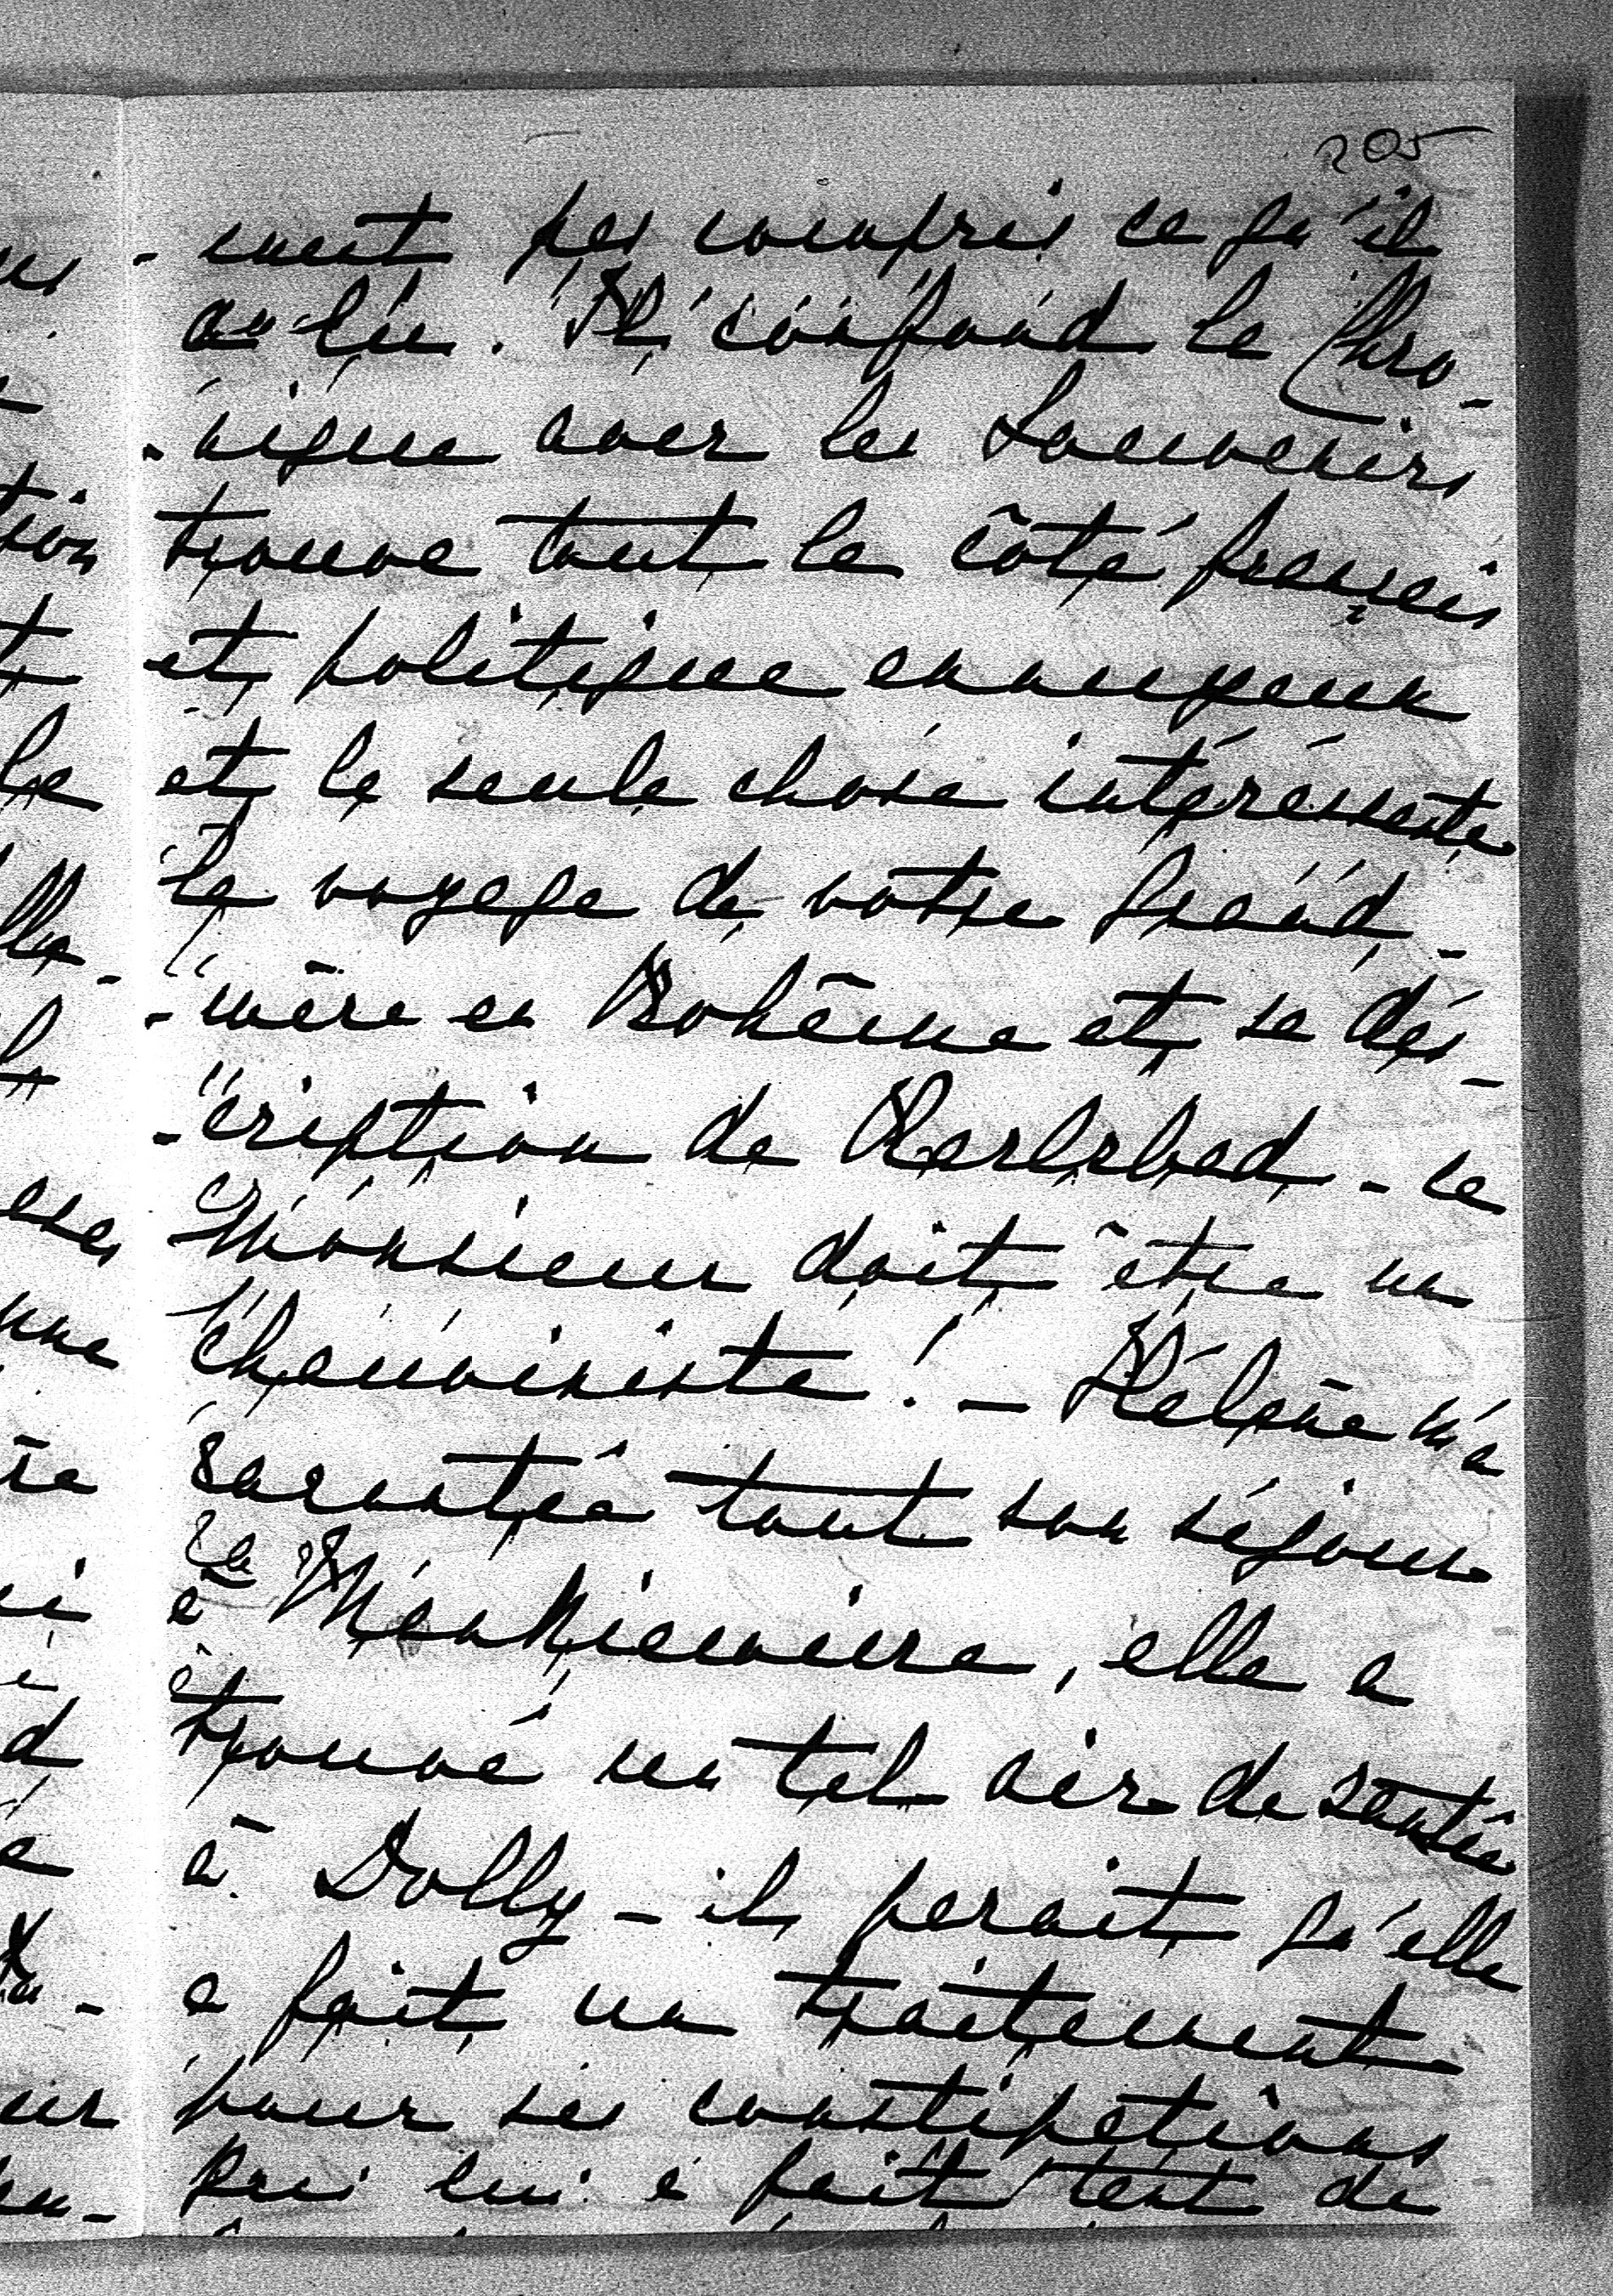 205
-ment pas compris ce qu'il
a lu. Il confond la Chro-
-nique avec les Souvenirs
trouve tout le côté français
et politique ennuyeux
et la seule chose intéressante
le voyage de votre grand-
-mère en Bohême et sa des-
-cription de Karlsbad - ce
Monsieur doit être un
chauviniste! - Hélène m'a
racontée tout son séjour
à Mankiewicze, elle a
trouvé un tel air de santée
à Dolly - il parait qu'elle
a fait un traitement
pour ses constipations
qui lui a fait tant de